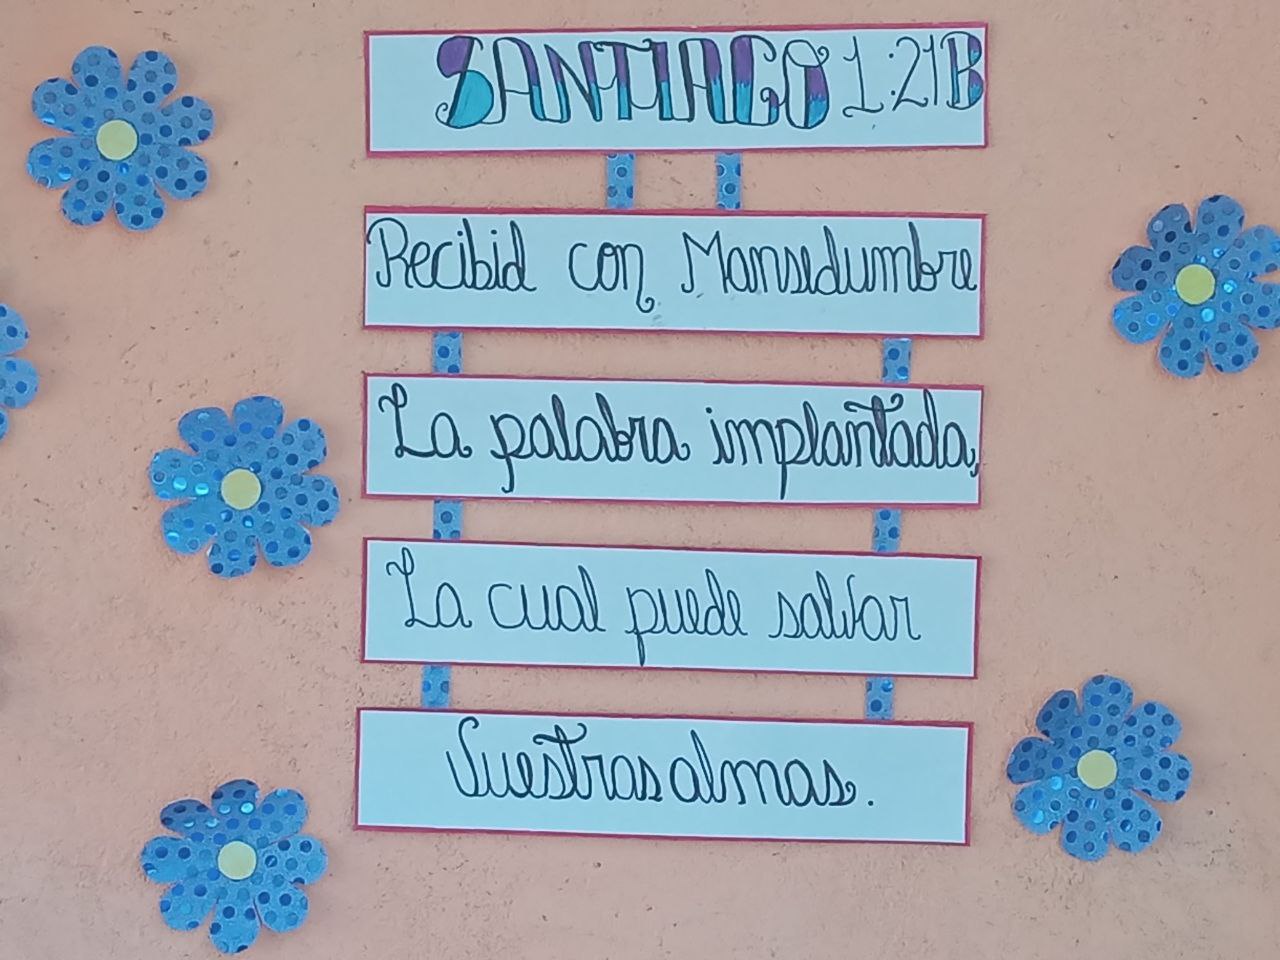 SANTIAGO 1:21B
Recibid con Mansedumbre
La palabra implantada,
La cual puede salvar
Vuestras almas.